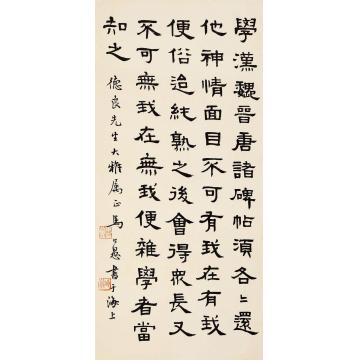 學漢魏晉唐諸碑帖須各各還
他神情面目不可有我在有我
便俗迨純熟之後會得眾長又
不可無我在無我便雜學者當
知之
德良先生大雅属正馬公愚書于海上